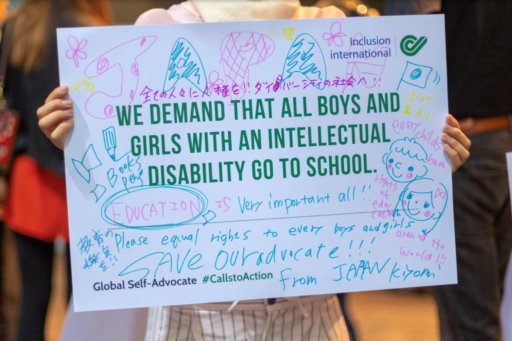 Inclusion
international
全ての人々に人権を!! ダイバーシティの社会へ!!
WE DEMAND THAT ALL BOYS AND
GIRLS WITH AN INTELLECTUAL
DISABILITY GO TO SCHOOL.
Books
pen
EDUCATION IS Very important all!!
Please equal rights to every boys and girls
around the
world!!
SAVE our advocate!!!
from JAPAN Kiyomi
Global Self-Advocate #CallstoAction